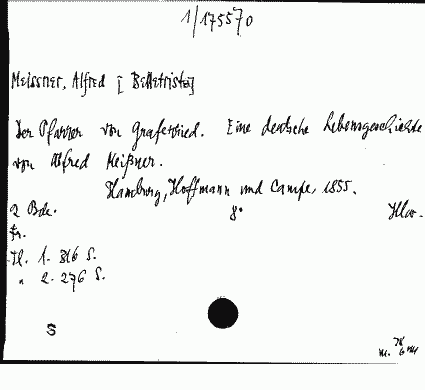 1/175570
Meissner, Alfred [Belletrist]
Der Pfarrer von Grafenried. Eine deutsche Lebensgeschichte
von Alfred Meißner.
Hamburg, Hoffmann und Campe, 1855.
2 Bde. 8°. Hlw.
Fr.
Tl. 1. 316 S.
" 2. 276 S.
S